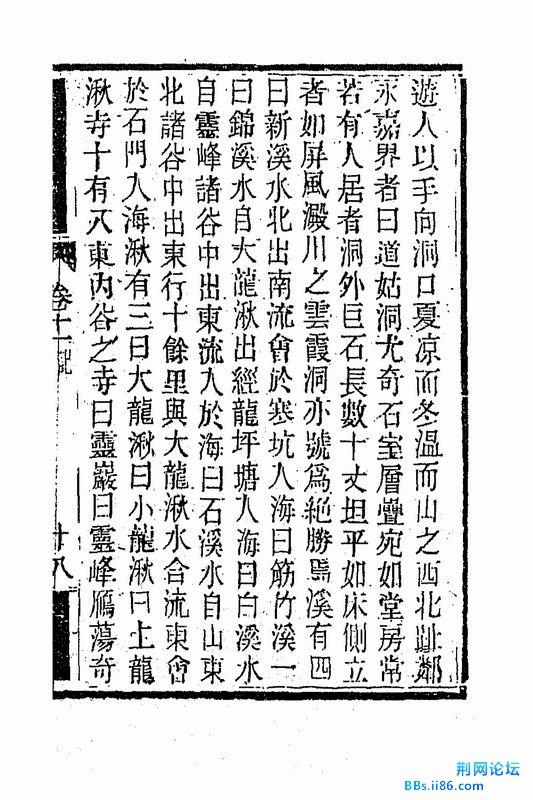 遊人以手向洞口夏凉而冬温而山之西北趾鄰
永嘉界者曰道姑洞尤奇石室層疊宛如堂房常
若有人居者洞外巨石長數十丈坦平如床側立
者如屏風澱川之雲霞洞亦號爲絶勝焉溪有四
曰新溪水北出南流會於寒坑入海曰筋竹溪一
曰錦溪水自大龍湫出經龍坪塘入海曰白溪水
自靈峰諸谷中出東流入於海曰石溪水自山東
北諸谷中出東行十餘里與大龍湫水合流東會
於石門入海湫有三曰大龍湫曰小龍湫曰上龍
湫寺十有八東內谷之寺曰靈巖曰靈峰鴈蕩奇
卷十一 記
廿八
荆网论坛
BBs.ii86.com